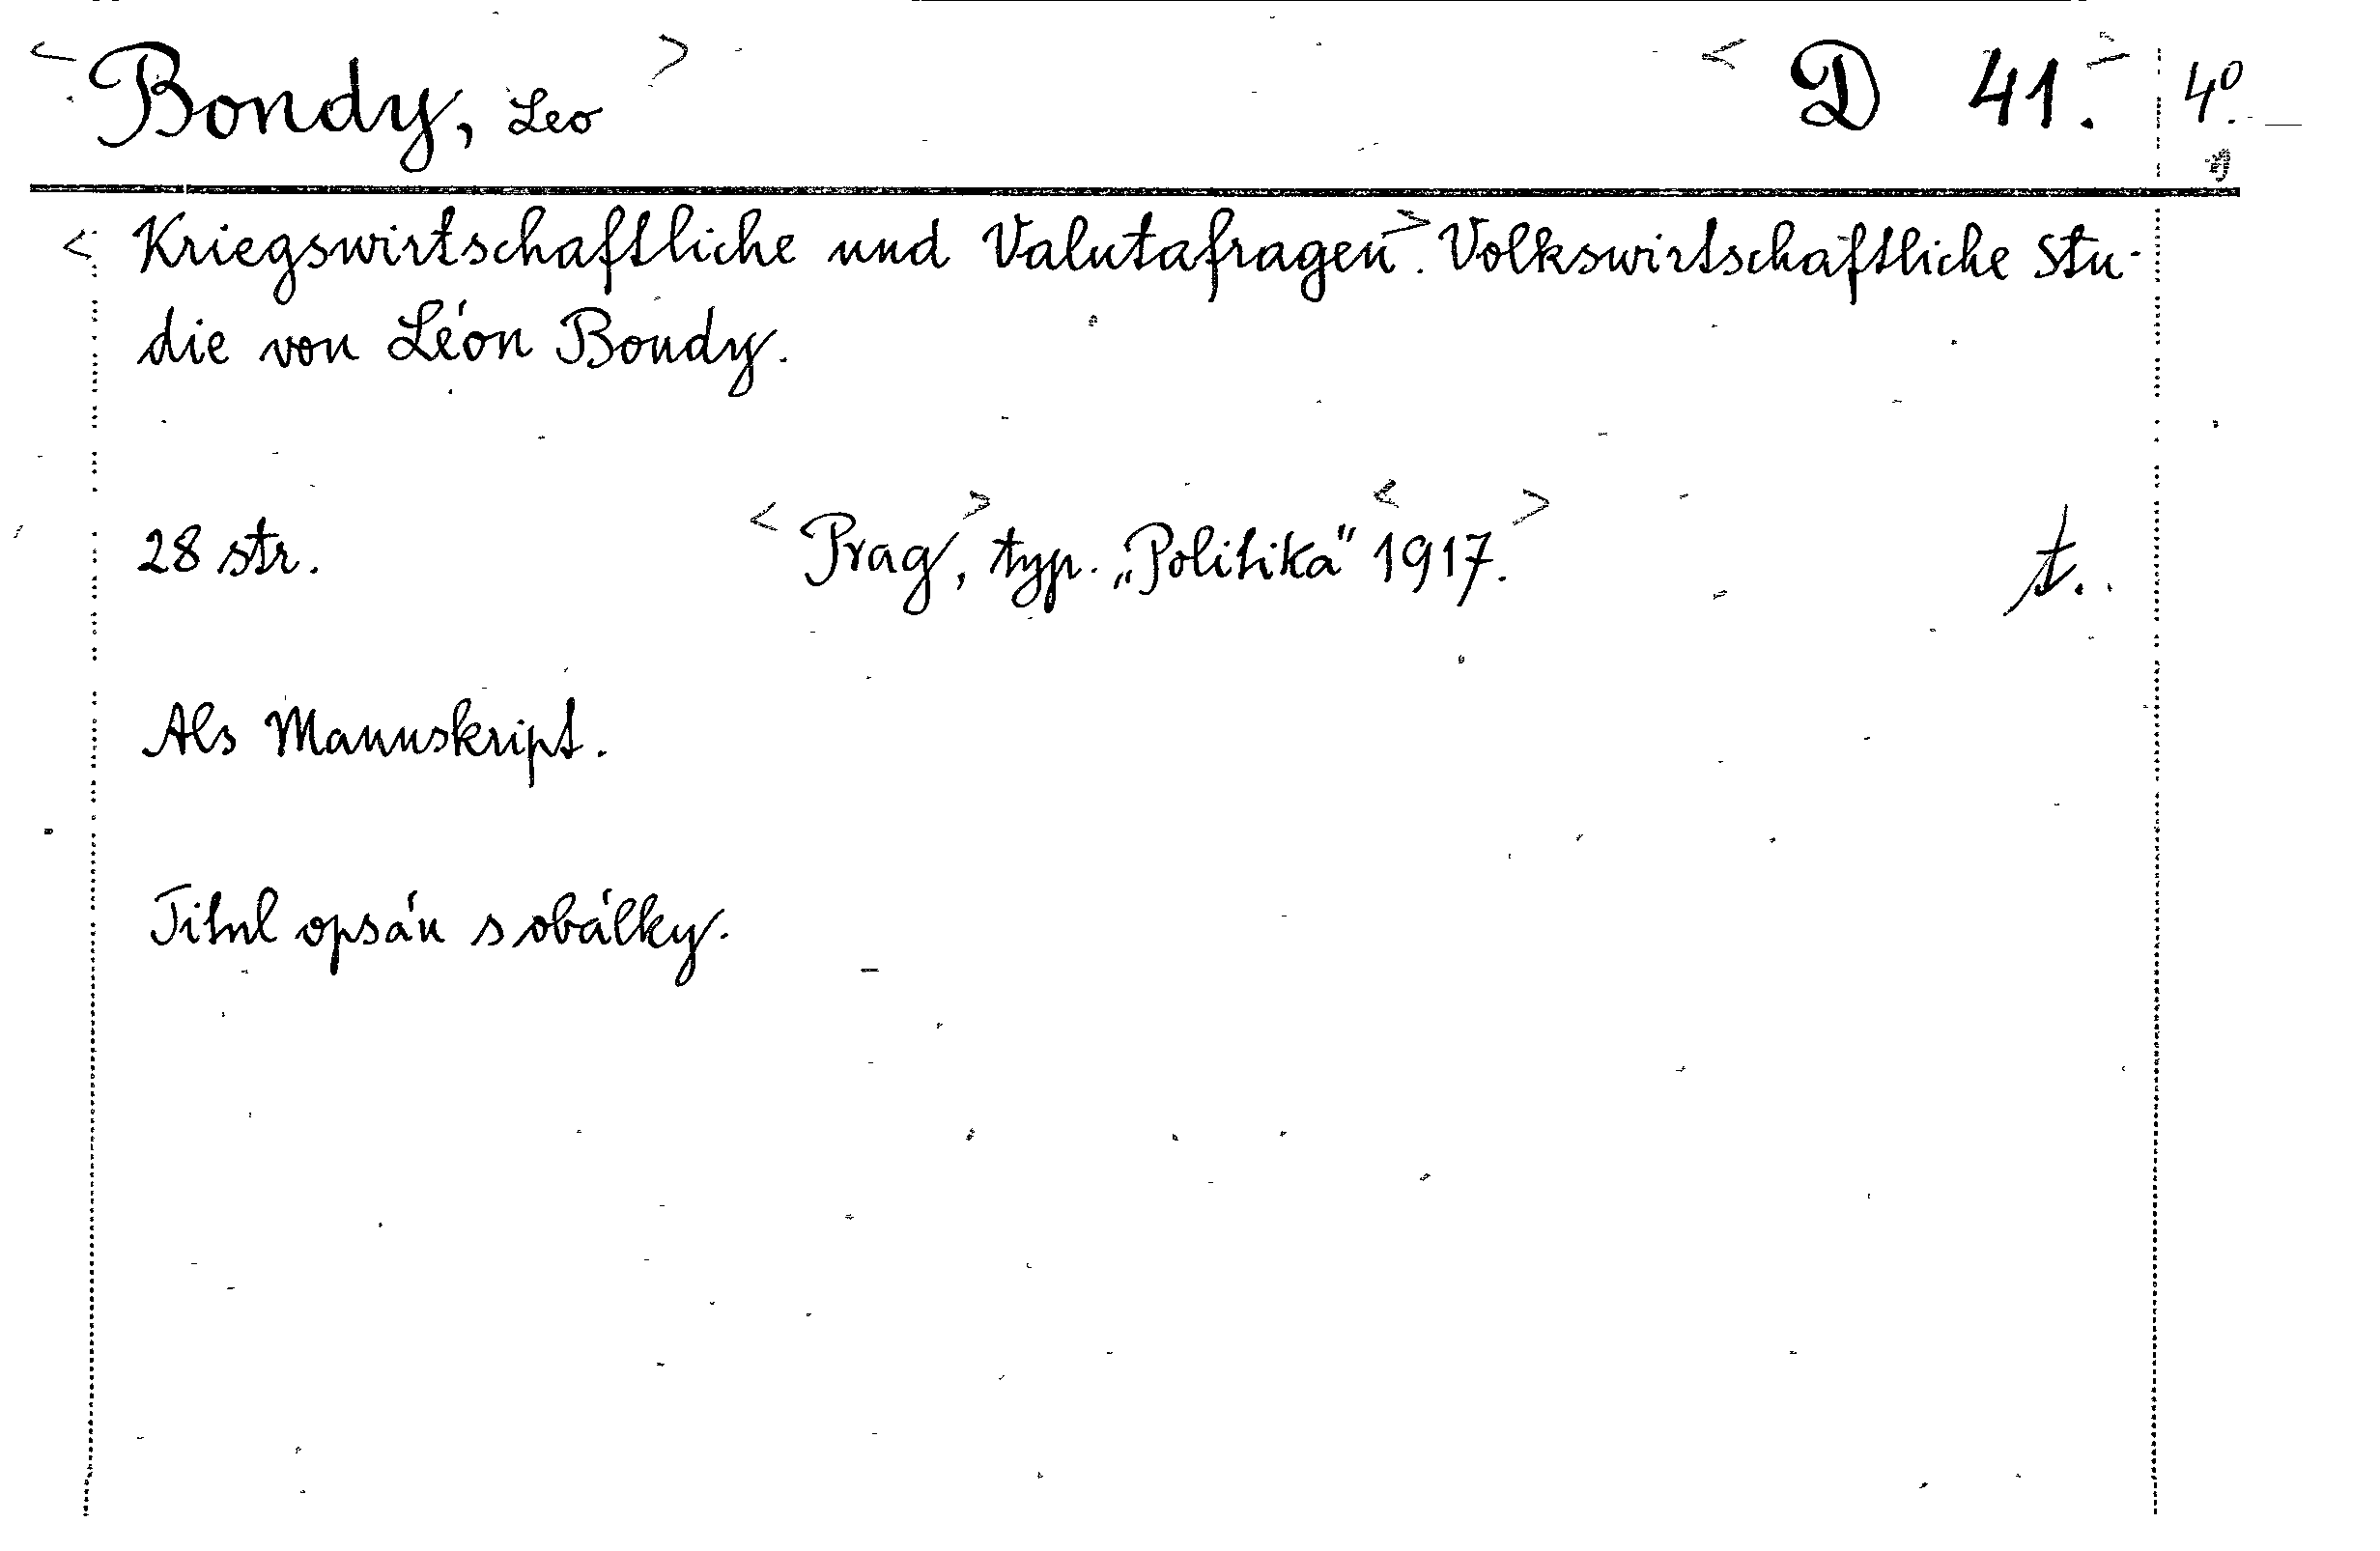 < Bondy, Leo > < D 41. > 4º.
< Kriegswirtschaftliche und Valutafragen >. Volkswirtschaftliche Stu-
die von Léon Bondy.
28 str. < Prag >, typ. „Politika" < 1917. > t.
Als Manuskript.
Titul opsán s obálky.